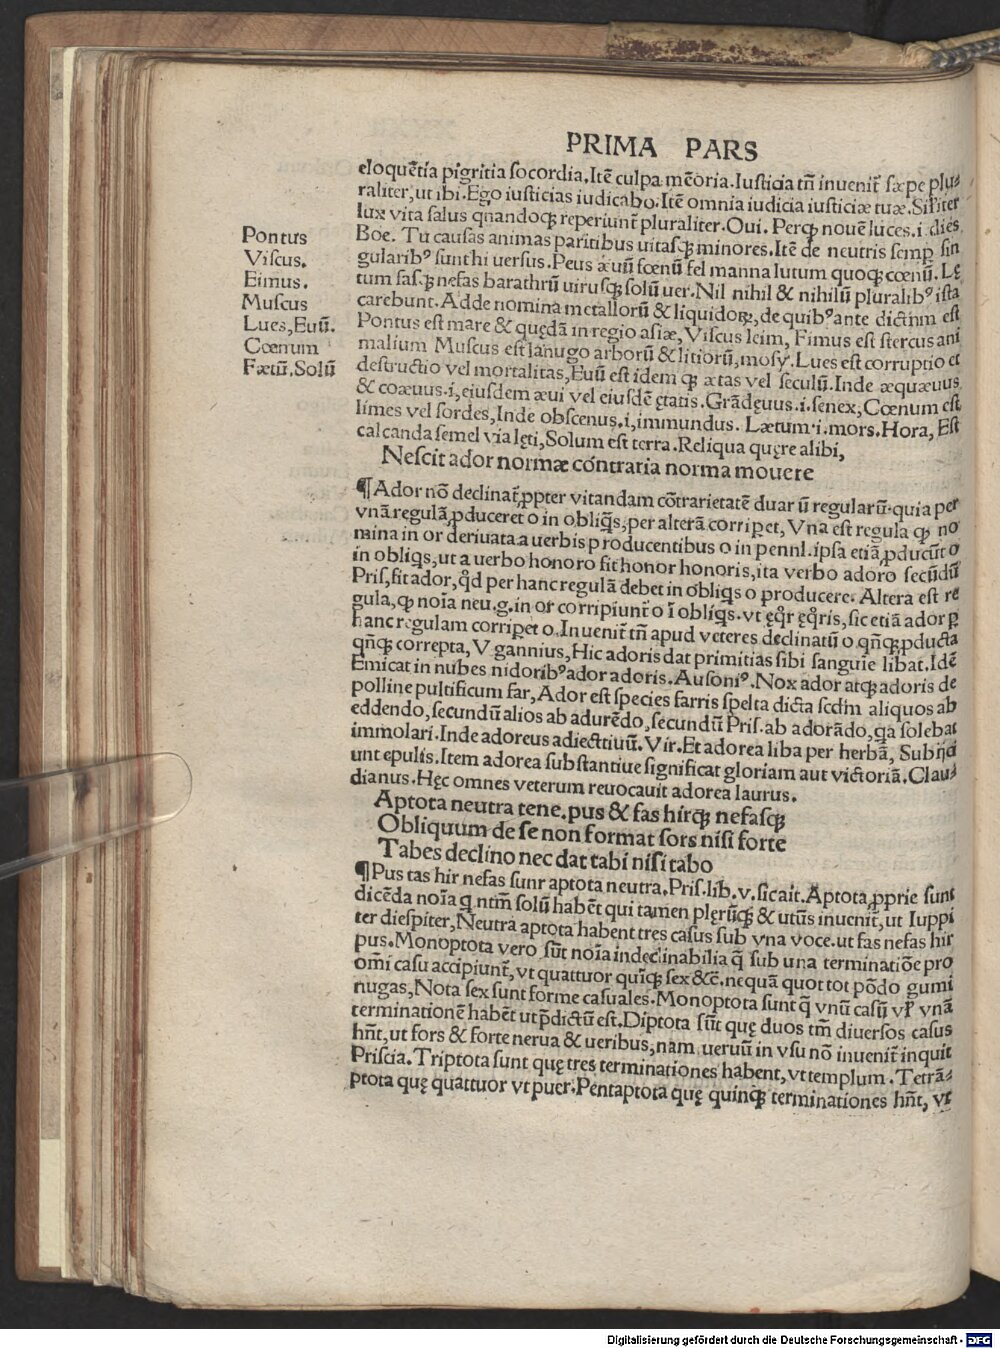 PRIMA PARS
eloquētia pigritia socordia. Itē culpa mēoria. Iusticia tñ inuenit̄ sæpe plu⸗
raliter, ut ibi. Ego iusticias iudicabo. Itē omnia iudicia iusticiæ tuæ. Siliter
lux vita salus quandoqꝫ reperiunt̄ pluraliter. Oui. Perqꝫ nouē luces. i dies
Boe. Tu causas animas paritibus uitasqꝫ minores. Itē de neutris semp sin
gularibꝰ sunt hi uersus. Peus æuū fœnū fel manna lutum quoqꝫ cœnū. Lę
tum fasqꝫ nefas barathrū uirusqꝫ solū uer. Nil nihil & nihilū pluralibꝰ ista
carebunt. Adde nomina metallorū & liquidoꝝ, de quibꝰ ante dictum est
Pontus est mare & quędā in regio asiæ, Viscus leim, Fimus est stercus ani
malium Muscus est lanugo arborū & litiorū, mosy. Lues est corruptio et
destructio vel mortalitas, Euū est idem qꝫ ætas vel seculū. Inde æquæuus
& coæuus. i, eiusdem æui vel eiusdē ętatis. Grādęuus. i. senex, Cœnum est
limes vel sordes, Inde obscenus. i, immundus. Lætum. i. mors. Hora, Est
calcanda semel via lęti, Solum est terra. Reliqua quęre alibi,
Pontus
Viscus.
Eimus.
Muscus
Lues, Euū.
Cœnum
Fætū. Solū
Nescit ador normæ contraria norma mouere
¶ Ador nō declinat̄ ꝓpter vitandam cōtrarietatē duarū regularū. quia per
vnā regulā ꝓduceret o in obliq̄s, per alterā corripet, Vna est regula qꝫ no
mina in or deriuata a uerbis producentibus o in pennl. ipsa etiā ꝓducūt o
in obliq̄s, ut a uerbo honoro fit honor honoris, ita verbo adoro secūdū
Pris, fit ador, qđ per hanc regulā debet in obliq̄s o producere. Altera est re
gula, qꝫ noīa neu. g. in or corripiunt o ī obliq̄s. vt ęq̄r ęq̄ris, sic etiā ador ꝑ
hanc regulam corripet o. Inuenit̄ tñ apud veteres declinatū o qñqꝫ ꝓducta
qñqꝫ correpta, V gannius, Hic adoris dat primitias sibi sanguie libat. Idē
Emicat in nubes nidoribꝰ ador adoris. Ausoniꝰ. Nox ador atqꝫ adoris de
polline pultificum far, Ador est species farris spelta dicta scdm aliquos ab
eddendo, secundū alios ab adurēdo, secundū Pris. ab adorādo, qa solebat
immolari. Inde adoreus adiectiuū. Vir. Et adorea liba per herbā, Subijci
unt epulis. Item adorea substantiue significat gloriam aut victoriā. Clau⸗
dianus. Hęc omnes veterum reuocauit adorea laurus.
Aptota neutra tene. pus & fas hirqꝫ nefasqꝫ
Obliquum de se non format fors nisi forte
Tabes declino nec dat tabi nisi tabo
¶ Pus tas hir nefas sunr aptota neutra. Pris. lib. v. sic ait. Aptota ꝓprie sunt
dicēda noīa q ntm̄ solū habēt qui tamen plerūqꝫ & utūs inuenit̄, ut Iuppi
ter diespiter, Neutra aptota habent tres casus sub vna voce. ut fas nefas hir
pus. Monoptota vero sūt noīa indeclinabilia q̄ sub una terminatiōe pro
om̄i casu accipiunt̄, vt quattuor quīqꝫ sex &c̄. nequā quot tot pōdo gumi
nugas, Nota sex sunt forme casuales. Monoptota sunt q̄ vnū casū vl̄ vnā
terminationē habēt ut p̄dictū est. Diptota sūt quę duos tm̄ diuersos casus
hñt, ut fors & forte nerua & ueribus, nam ueruū in vsu nō inuenit̄ inquit
Priscia. Triptota sunt quę tres terminationes habent, vt templum. Tetrā⸗
ptota quę quattuor vt puer. Pentaptota quę quinqꝫ terminationes hñt, vt
Digitalisierung gefördert durch die Deutsche Forschungsgemeinschaft - DFG